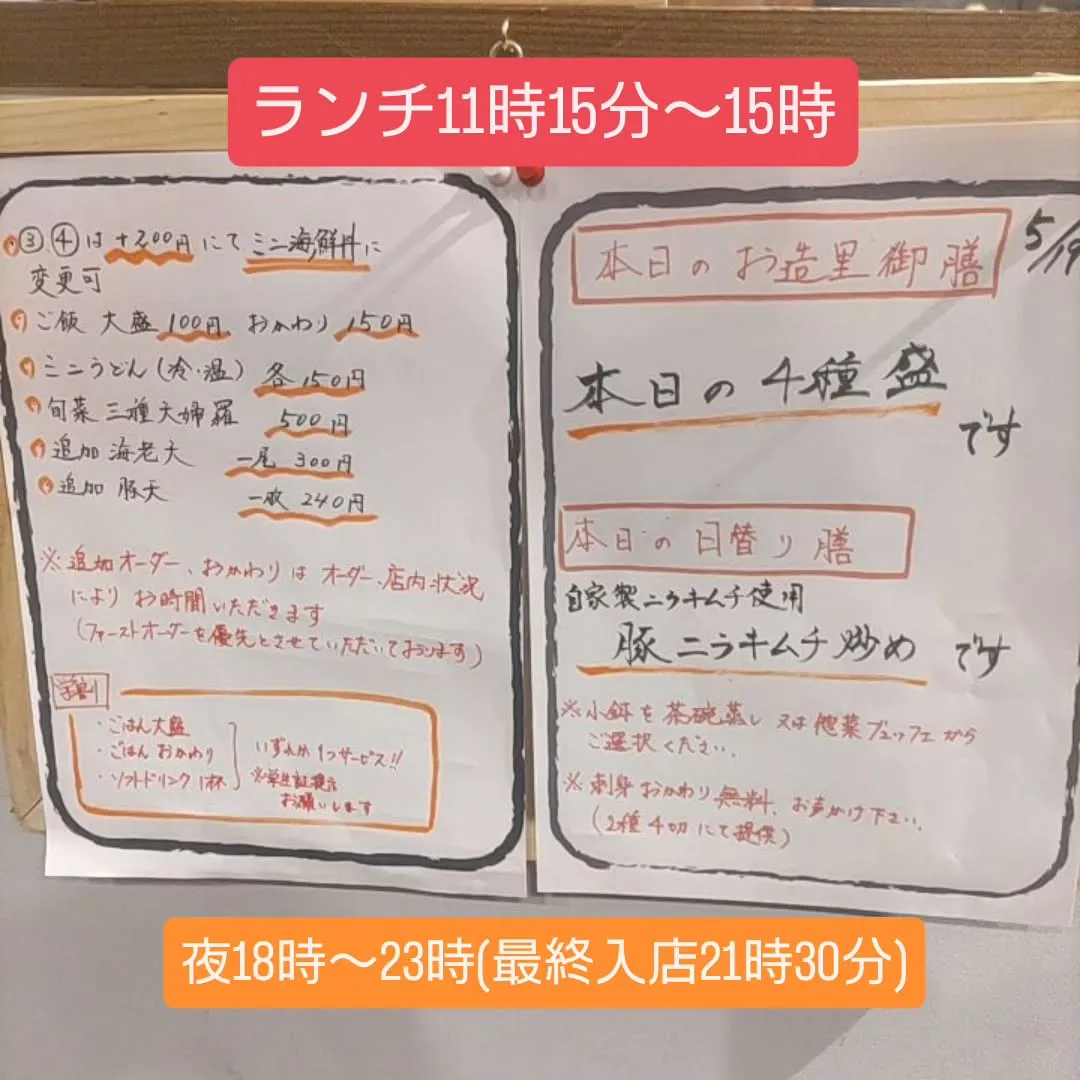 ランチ11時15分〜15時
③.④は+200円にてミニ海鮮丼に
変更可
ご飯 大盛100円、おかわり150円
ミニうどん(冷・温) 各150円
旬菜三種天婦羅 500円
追加 海老天 一尾 300円
追加 豚天 一枚 240円
※追加オーダー、おかわりは オーダー、店内状況
により お時間いただきます
(ファーストオーダーを優先とさせていただいております)
学割
・ごはん大盛
・ごはん おかわり
・ソフトドリンク 1杯
いずれか1つサービス!!
※学生証提示
お願いします
5/19
本日のお造里御膳
本日の4種盛
です
本日の日替り膳
自家製ニラキムチ使用
豚ニラキムチ炒め です
※小鉢を茶碗蒸し 又は惣菜ブュッフェから
ご選択ください。
※刺身おかわり無料、お声かけ下さい。
(2種4切にて提供)
夜18時〜23時(最終入店21時30分)